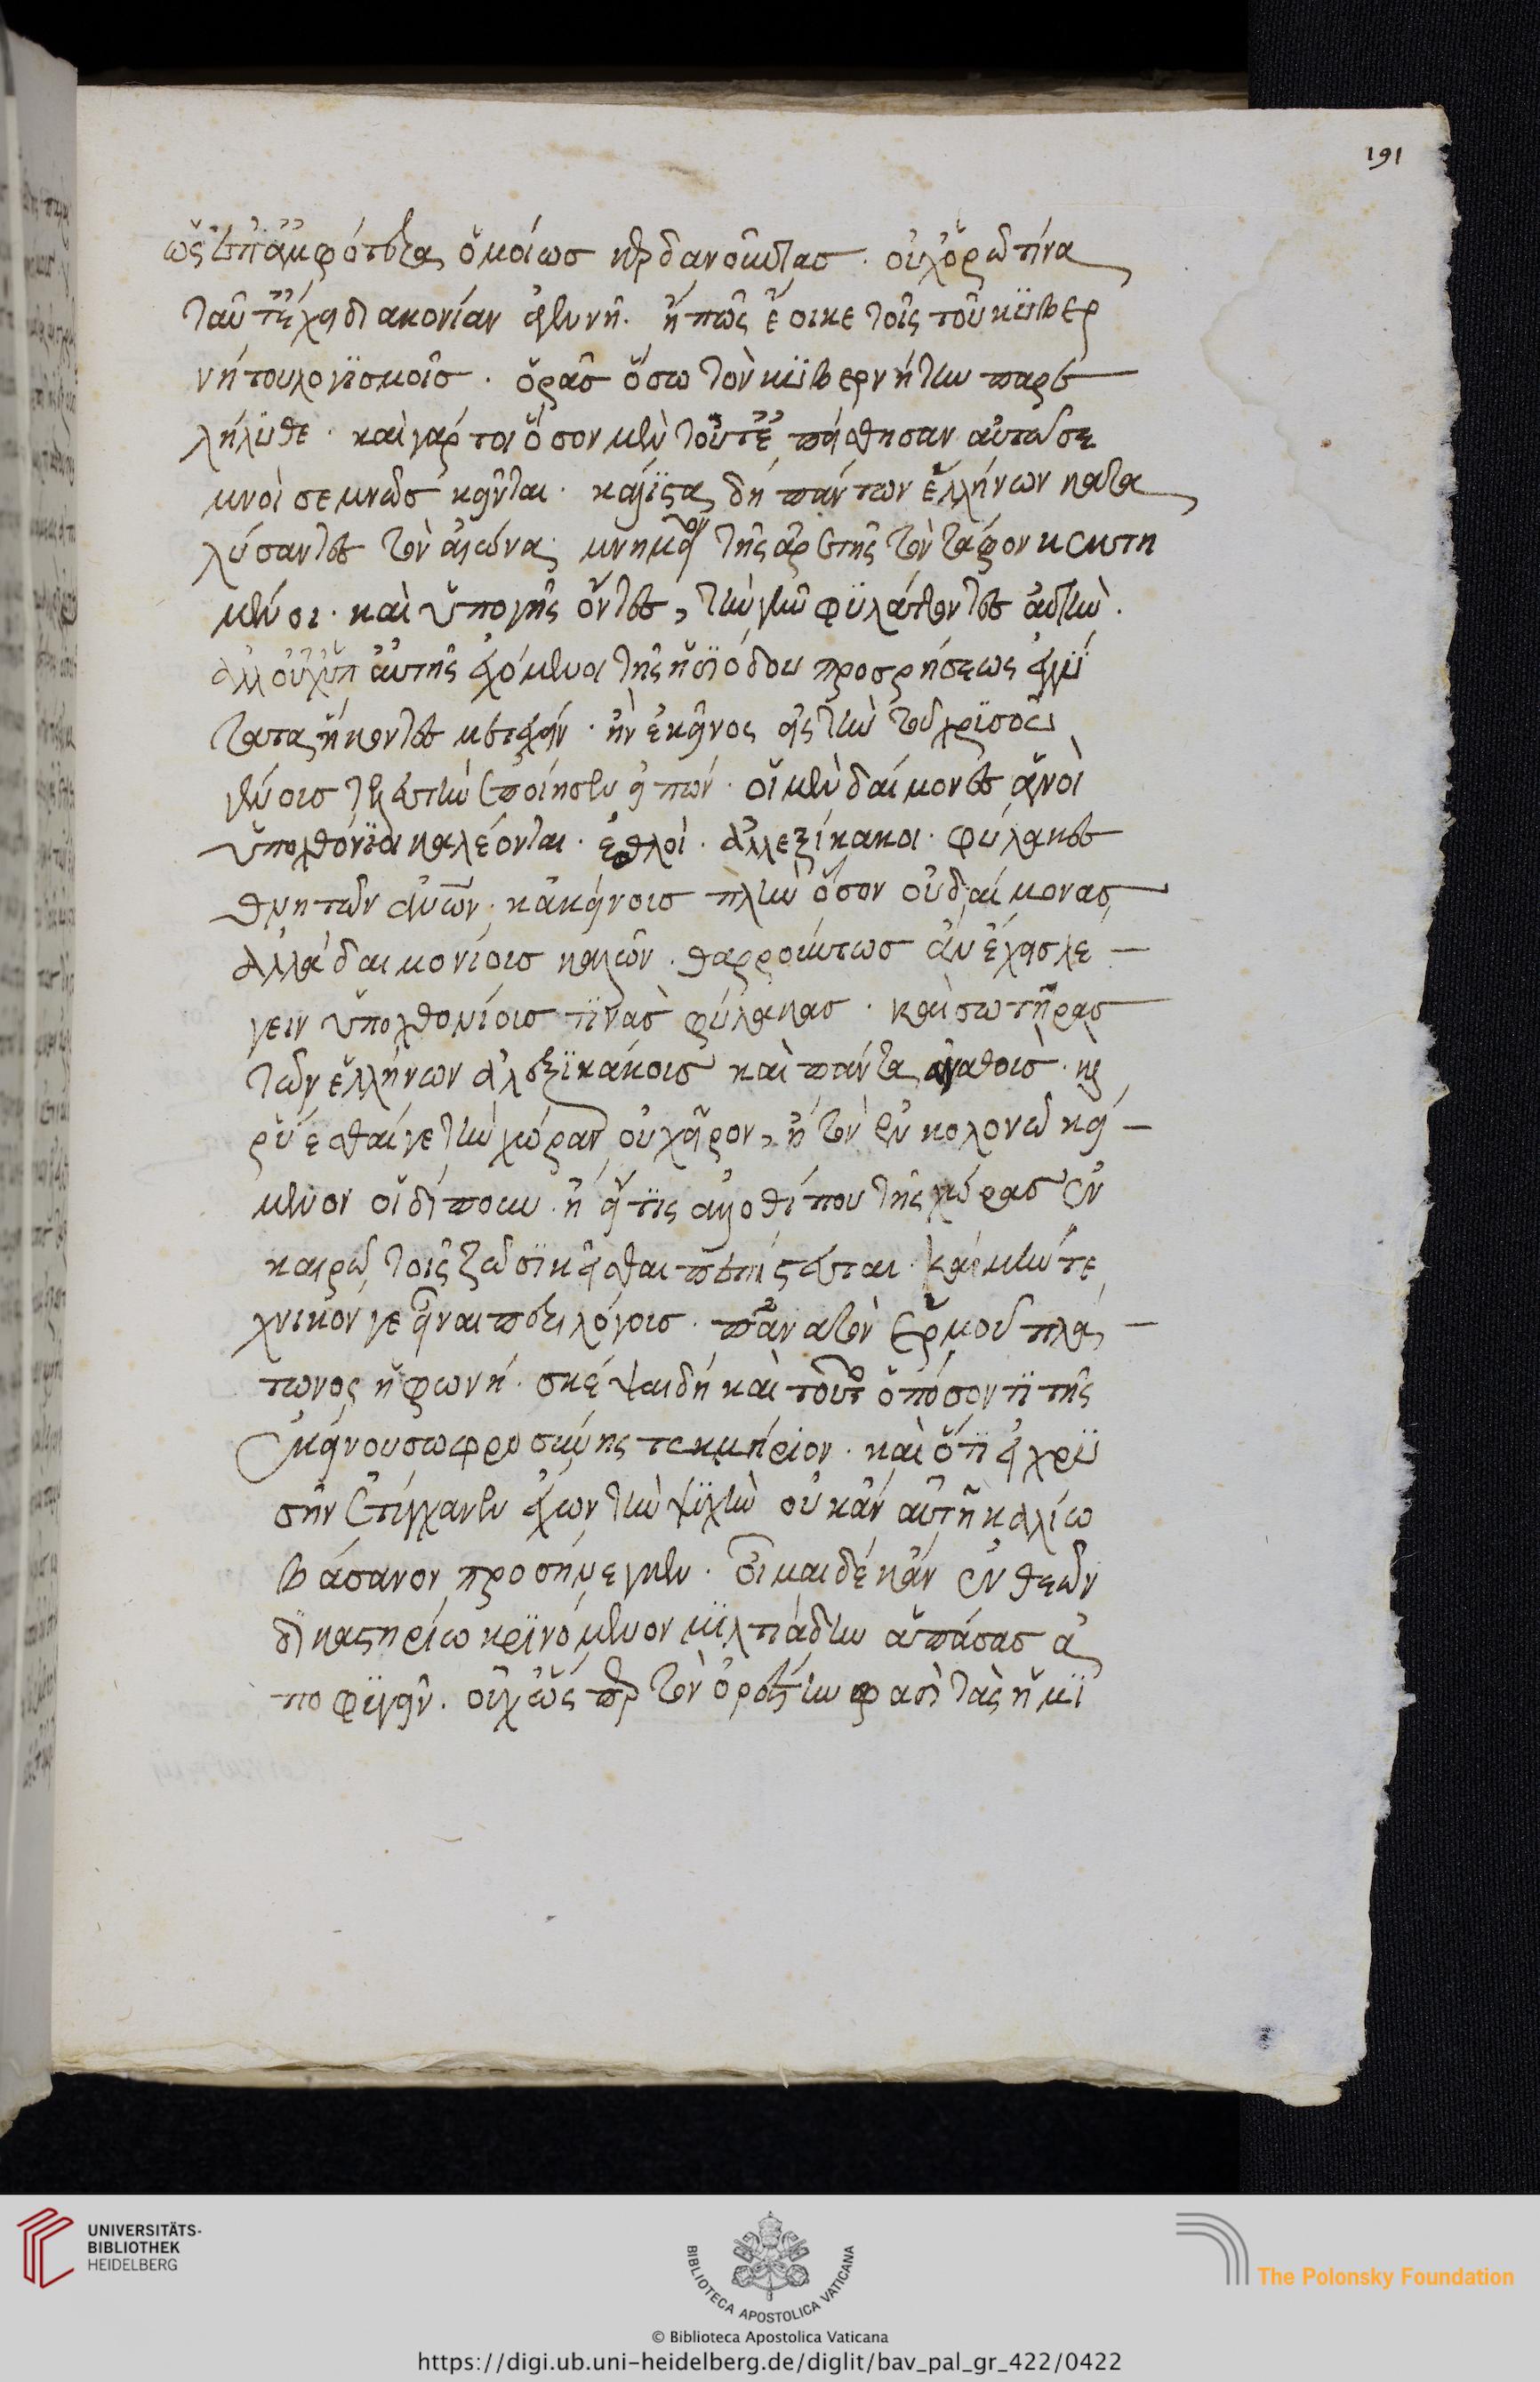 191
ὥς ἐπ' ἀμφότερα ὁμοίως κερδανοῦντας. οὐχ ὁρῶ τίνα
ταῦτ' ἔχει διακονίαν φαυλην. ἢ πῶς ἔοικε τοῖς τοῦ κυβερ
νήτου λογισμοῖς. ὁρᾷς ὅσω τὸν κυβερνήτην παρε
λήλυθε. καὶ γάρ τοι ὅσον μὲν τοῦτ' ἐπείσθησαν αὐτῶ σε
μνοὶ σεμνῶς κεῖνται. κάλλιστα δὴ πάντων ἑλλήνων κατα
λύσαντες τὸν αἰῶνα. μνημεῖον τῆς ἀρετῆς τὸν τάφον κεκτη
μένοι. καὶ ὑπὸ γῆς ὄντες, τὴν γῆν φυλάττοντες αὐτὴν.
ἀλλ' οὐχ ὑπ' αὐτῆς ἐχόμενοι τῆς ἡσιόδου προσρήσεως ἐγγύ
τατα ἥκοντες μετασχεῖν. ἣν ἐκεῖνος εἰς τὴν τοῦ χρυσοῦ
γένους τελευτὴν ἐποίησεν εἰπών. οἱ μὲν δαίμονες ἁγνοὶ
ὑποχθόνιοι καλέονται. ἐσθλοὶ. ἀλλεξίκακοι. φύλακες
θνητῶν ἀνθρώπων. κἀκείνους πλὴν ὅσον οὐ δαίμονας
ἀλλὰ δαιμονίους καλῶν. θαρρούντως ἂν ἔχοις λέ
γειν ὑποχθονίους τινὰς φύλακας. καὶ σωτῆρας
τῶν ἑλλήνων ἀλεξικάκους καὶ πάντα ἀγαθοὺς. καὶ
ῥύεσθαί γε τὴν χώραν οὐ χεῖρον, ἢ τὸν ἐν κολονῶ κεί
μενον οἰδίπουν. ἢ εἴ τις ἄλλοθί που τῆς χώρας ἐν
καιρῶ τοῖς ζῶσι κεῖσθαι πεπίστευται. καὶ μὴν τε
χνικόν γε εἶναι περὶ λόγους. πᾶν ἂν τὸν ἑρμοῦ πλά
τωνος ἡ φωνή. σκέψαι δὴ καὶ τοῦτο ὁπόσον τι τῆς
ἐκείνου σωφροσύνης τεκμήριον. καὶ ὅτι εἰ χρυ
σῆν ἐτύγχανεν ἔχων τὴν ψυχὴν οὐκ ἂν αὐτῆ καλλίω
βάσανον προσήνεγκεν. οἶμαι δὲ κἂν ἐν θεῶν
δικαστηρίω κρινόμενον μιλτιάδην ἁπάσας ἀ
ποφυγεῖν. οὐχ ὥσπερ τὸν ὀρέστην φασὶ τὰς ἡμι
UNIVERSITÄTS-
BIBLIOTHEK
HEIDELBERG
BIBLIOTECA APOSTOLICA VATICANA
The Polonsky Foundation
© Biblioteca Apostolica Vaticana
https://digi.ub.uni-heidelberg.de/diglit/bav_pal_gr_422/0422